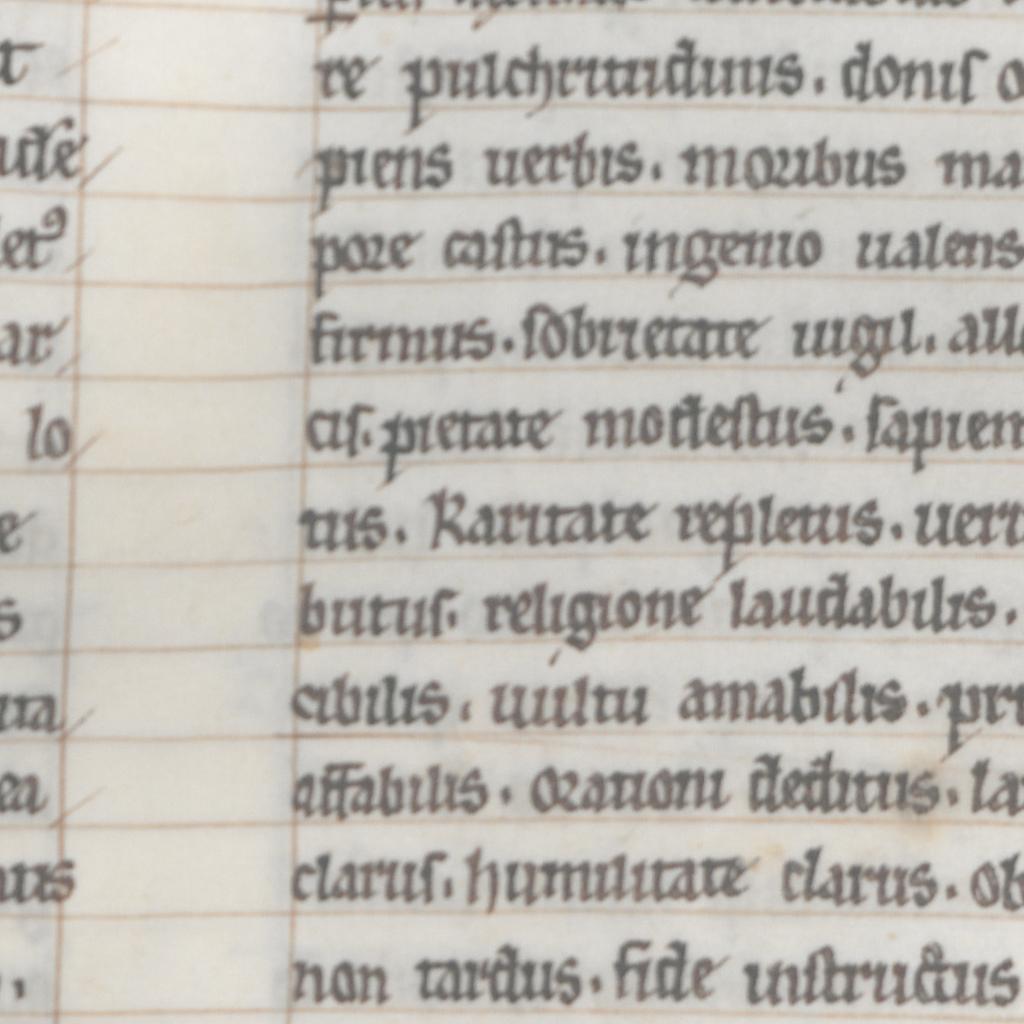 re pulchritudinis. donis
piens uerbis. moribus ma
pore castus. ingenio ualens
firmus. sobrietate uigil. all
cis. pietate modestus. sapien
tus. Karitate repletus. uert
butus. religione laudabilis.
cibilis. uultu amabilis. pri
affabilis. orationi deditus. la
clarus. humilitate clarus. ob
non tardus. fide instructus
t
ar
lo
e
s
uta
ea